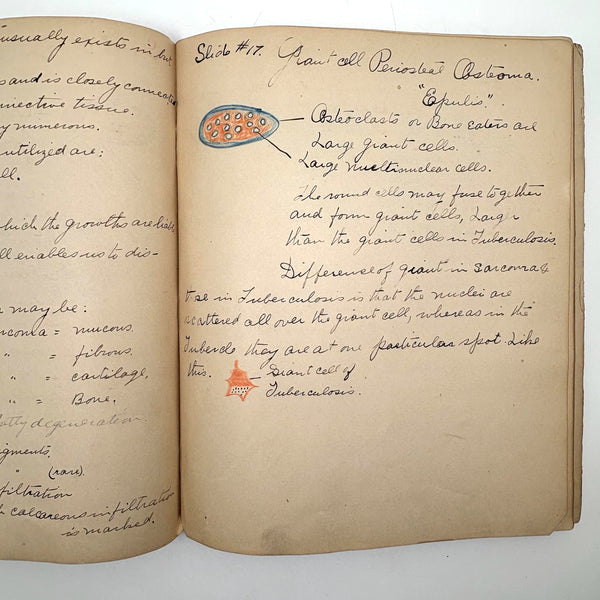 usually exists in but
s and is closely connected
nnective tissue.
y numerous.
utilized are;
ll.
which the growths are liable
ll enables us to dis-
r may be:
rcoma = mucous.
" = fibrous.
" = cartilage.
" = Bone.
fatty degeneration.
igments.
" (rare).
filtration
h calcareous infiltration
is marked.
Slide #17. Giant cell Periosteal Osteoma.
"Epulis".
Osteoclasts or Bone eaters are
Large giant cells.
Large multinuclear cells.
The round cells may fuse together
and form giant cells, Larger
than the giant cells in Tuberculosis.
Difference of giant in sarcoma &
those in Tuberculosis is that the nuclei are
scattered all over the giant cell, whereas in the
Tubercle they are at one particular spot like
this.
Giant cell of
Tuberculosis.